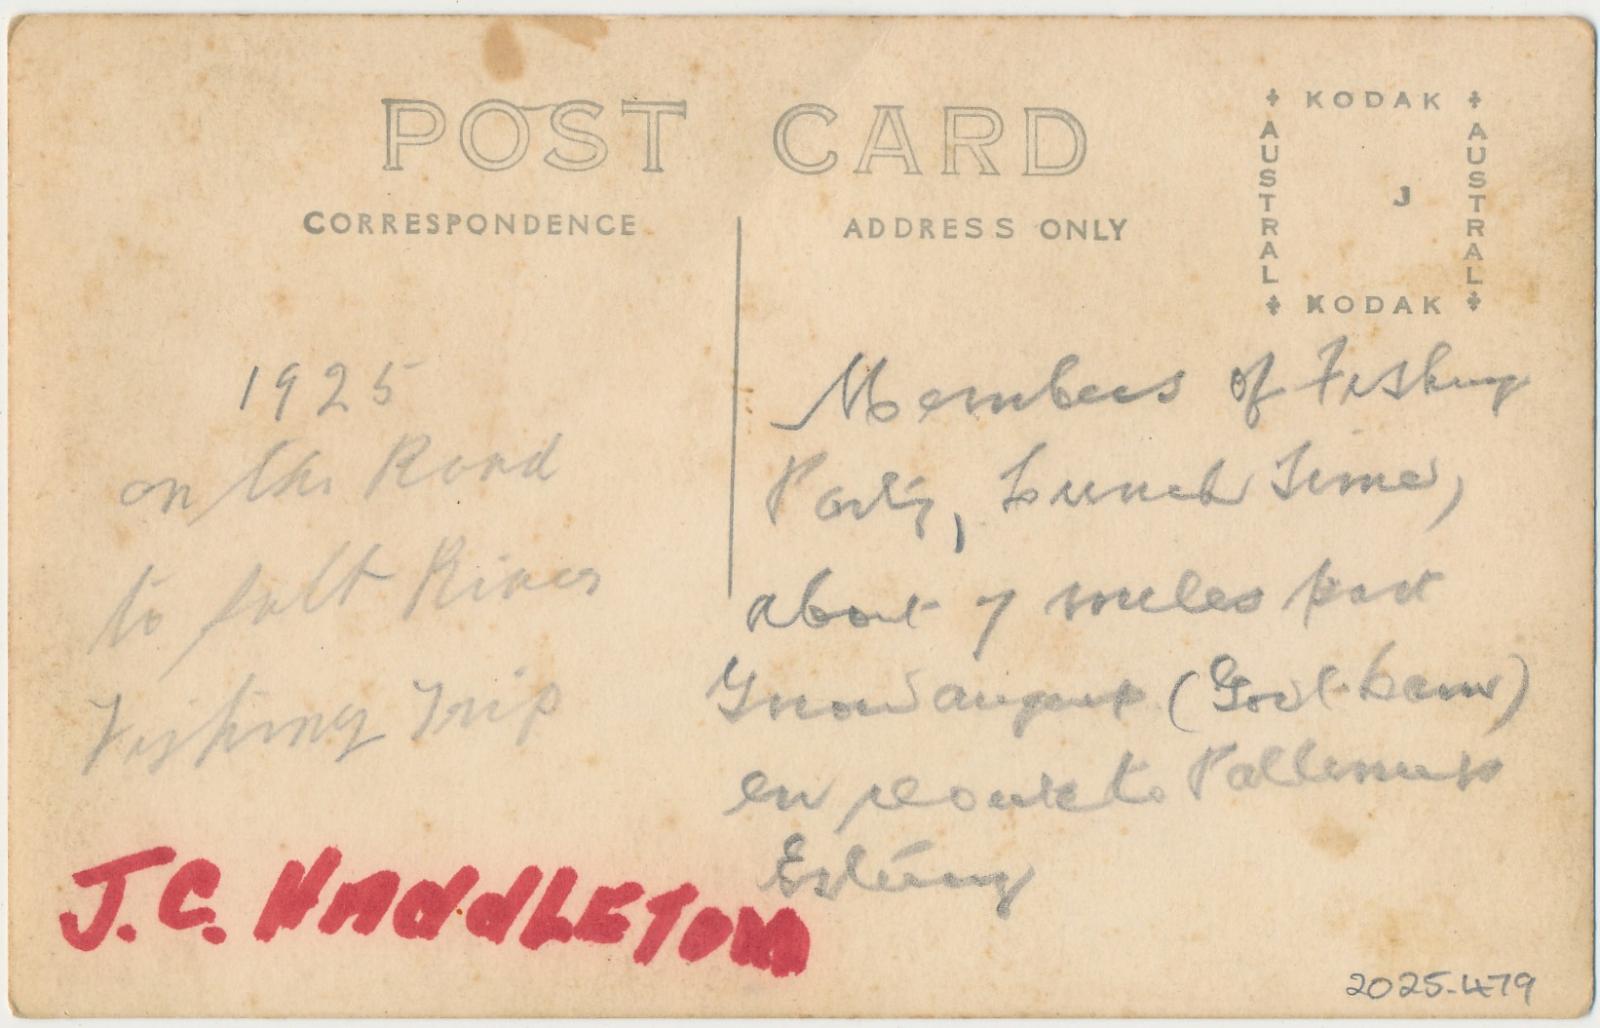 POST CARD
CORRESPONDENCE
ADDRESS ONLY
KODAK
AUSTRAL
AUSTRAL
J
KODAK
1925
on the Road
to Salt River
Fishing Trip
Members of Fishing
Party, Lunch Time,
about 7 miles past
Gnowangerup
en route to Pallinup
Estuary
J.C. HADDLETON
2025-479